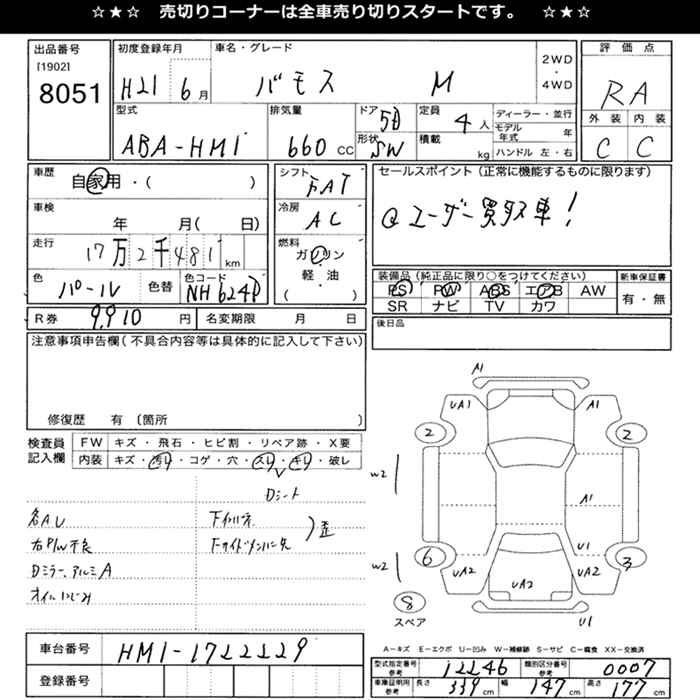 ☆★☆ 売切りコーナーは全車売り切りスタートです。 ☆★☆
出品番号 初度登録年月 車名・グレード 2WD 評価点
[1902]
8051 H21 6月 バモス M ・ 4WD RA
型式 排気量 ドア 5D 定員 4人 ディーラー・並行 外装 内装
ABA-HM1 660cc 形状 SW 積載 kg モデル年式 年 C C
ハンドル 左・右
車歴 自家用・( ) シフト FAT セールスポイント(正常に機能するものに限ります)
車検 年 月( 日) 冷房 AC ユーザー買取車!
走行 17万2千481km 燃料 ガソリン
軽・油
( )
色 パール 色替 色コード NH624P
装備品(純正品に限り○をつけてください) 新車保証書
PS PW ABS エアB AW 有・無
SR ナビ TV カワ
R券 9,910円 名変期限 月 日
後日品
注意事項申告欄(不具合内容等は具体的に記入して下さい)
修復歴 有 〔箇所 〕
検査員記入欄 FW キズ・飛石・ヒビ割・リペア跡・X要
内装 キズ・汚れ・コゲ・穴・スレ・キレ・破レ
Dシート
各AU
右P/W不良 歪
Dミラー、アルミA
オイルにじみ
M
UA1 A1
2 2
W2
A1
U1
W2 6 3
UA2 UA2 UA2
8
スペア U1
車台番号 HM1-1722229
登録番号
A-キズ E-エクボ U-凹み W-補修跡 S-サビ C-腐食 XX-交換済
型式指定番号 参考 12246 類別区分番号 参考 0007
車庫証明用 参考 長さ 339cm 幅 147cm 高さ 177cm